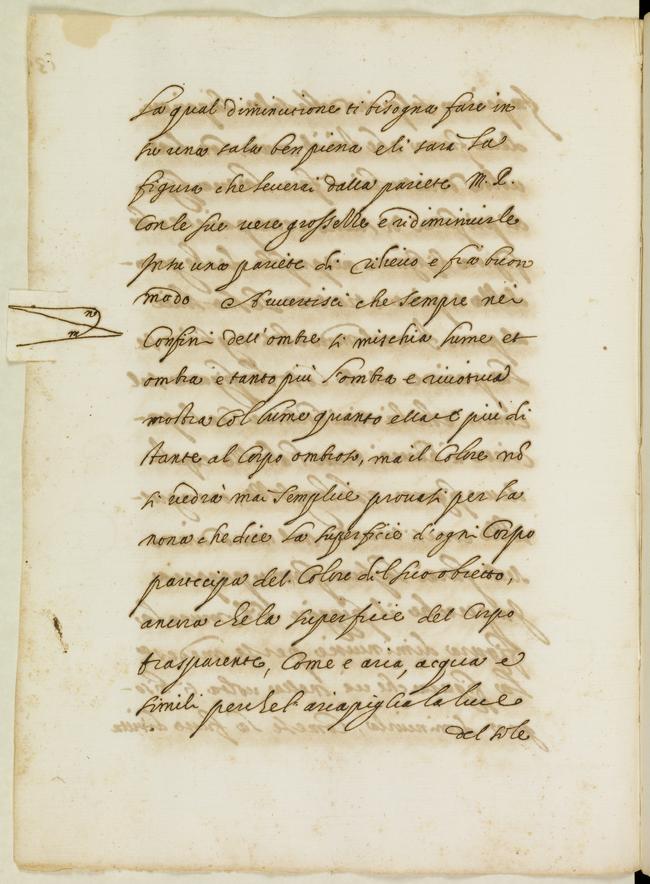 La qual diminutione ti bisogna fare in
su una sala ben piena e li sara la
figura che leverai dalla pariete M. R.
con le sue vere grossezze e ridiminuirle
In su una pariete di rilievo e fia buon
modo Avvertisci che sempre nei
Confini dell'ombre si mischia lume et
ombra e tanto più l'ombra e
mostra Col lume quanto ella è più di
stante al Corpo ombroso, ma il Colore nõ
si vedrà mai semplice provasi per la
nona che dice La superficie d'ogni Corpo
partecipa del Colore del suo obietto,
ancora che la superficie del Corpo
trasparente, Come e aria, acqua e
simili perche l'aria piglia la luce
del sole
n
m